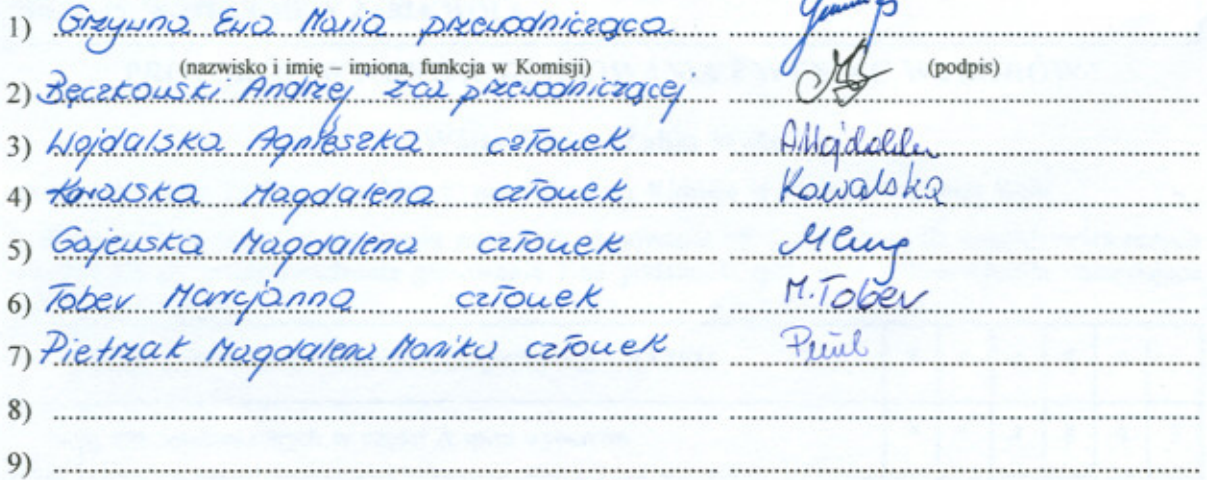 1) Grzywna Ewa Maria przewodnicząca
(nazwisko i imię – imiona, funkcja w Komisji) (podpis)
2) Bęczkowski Andrzej z-ca przewodniczącej
3) Wojdalska Agnieszka członek
4) Kowalska Magdalena członek Kowalska
5) Gajewska Magdalena członek
6) Tober Marcjanna członek M. Tober
7) Pietrzak Magdalena Monika członek
8)
9)